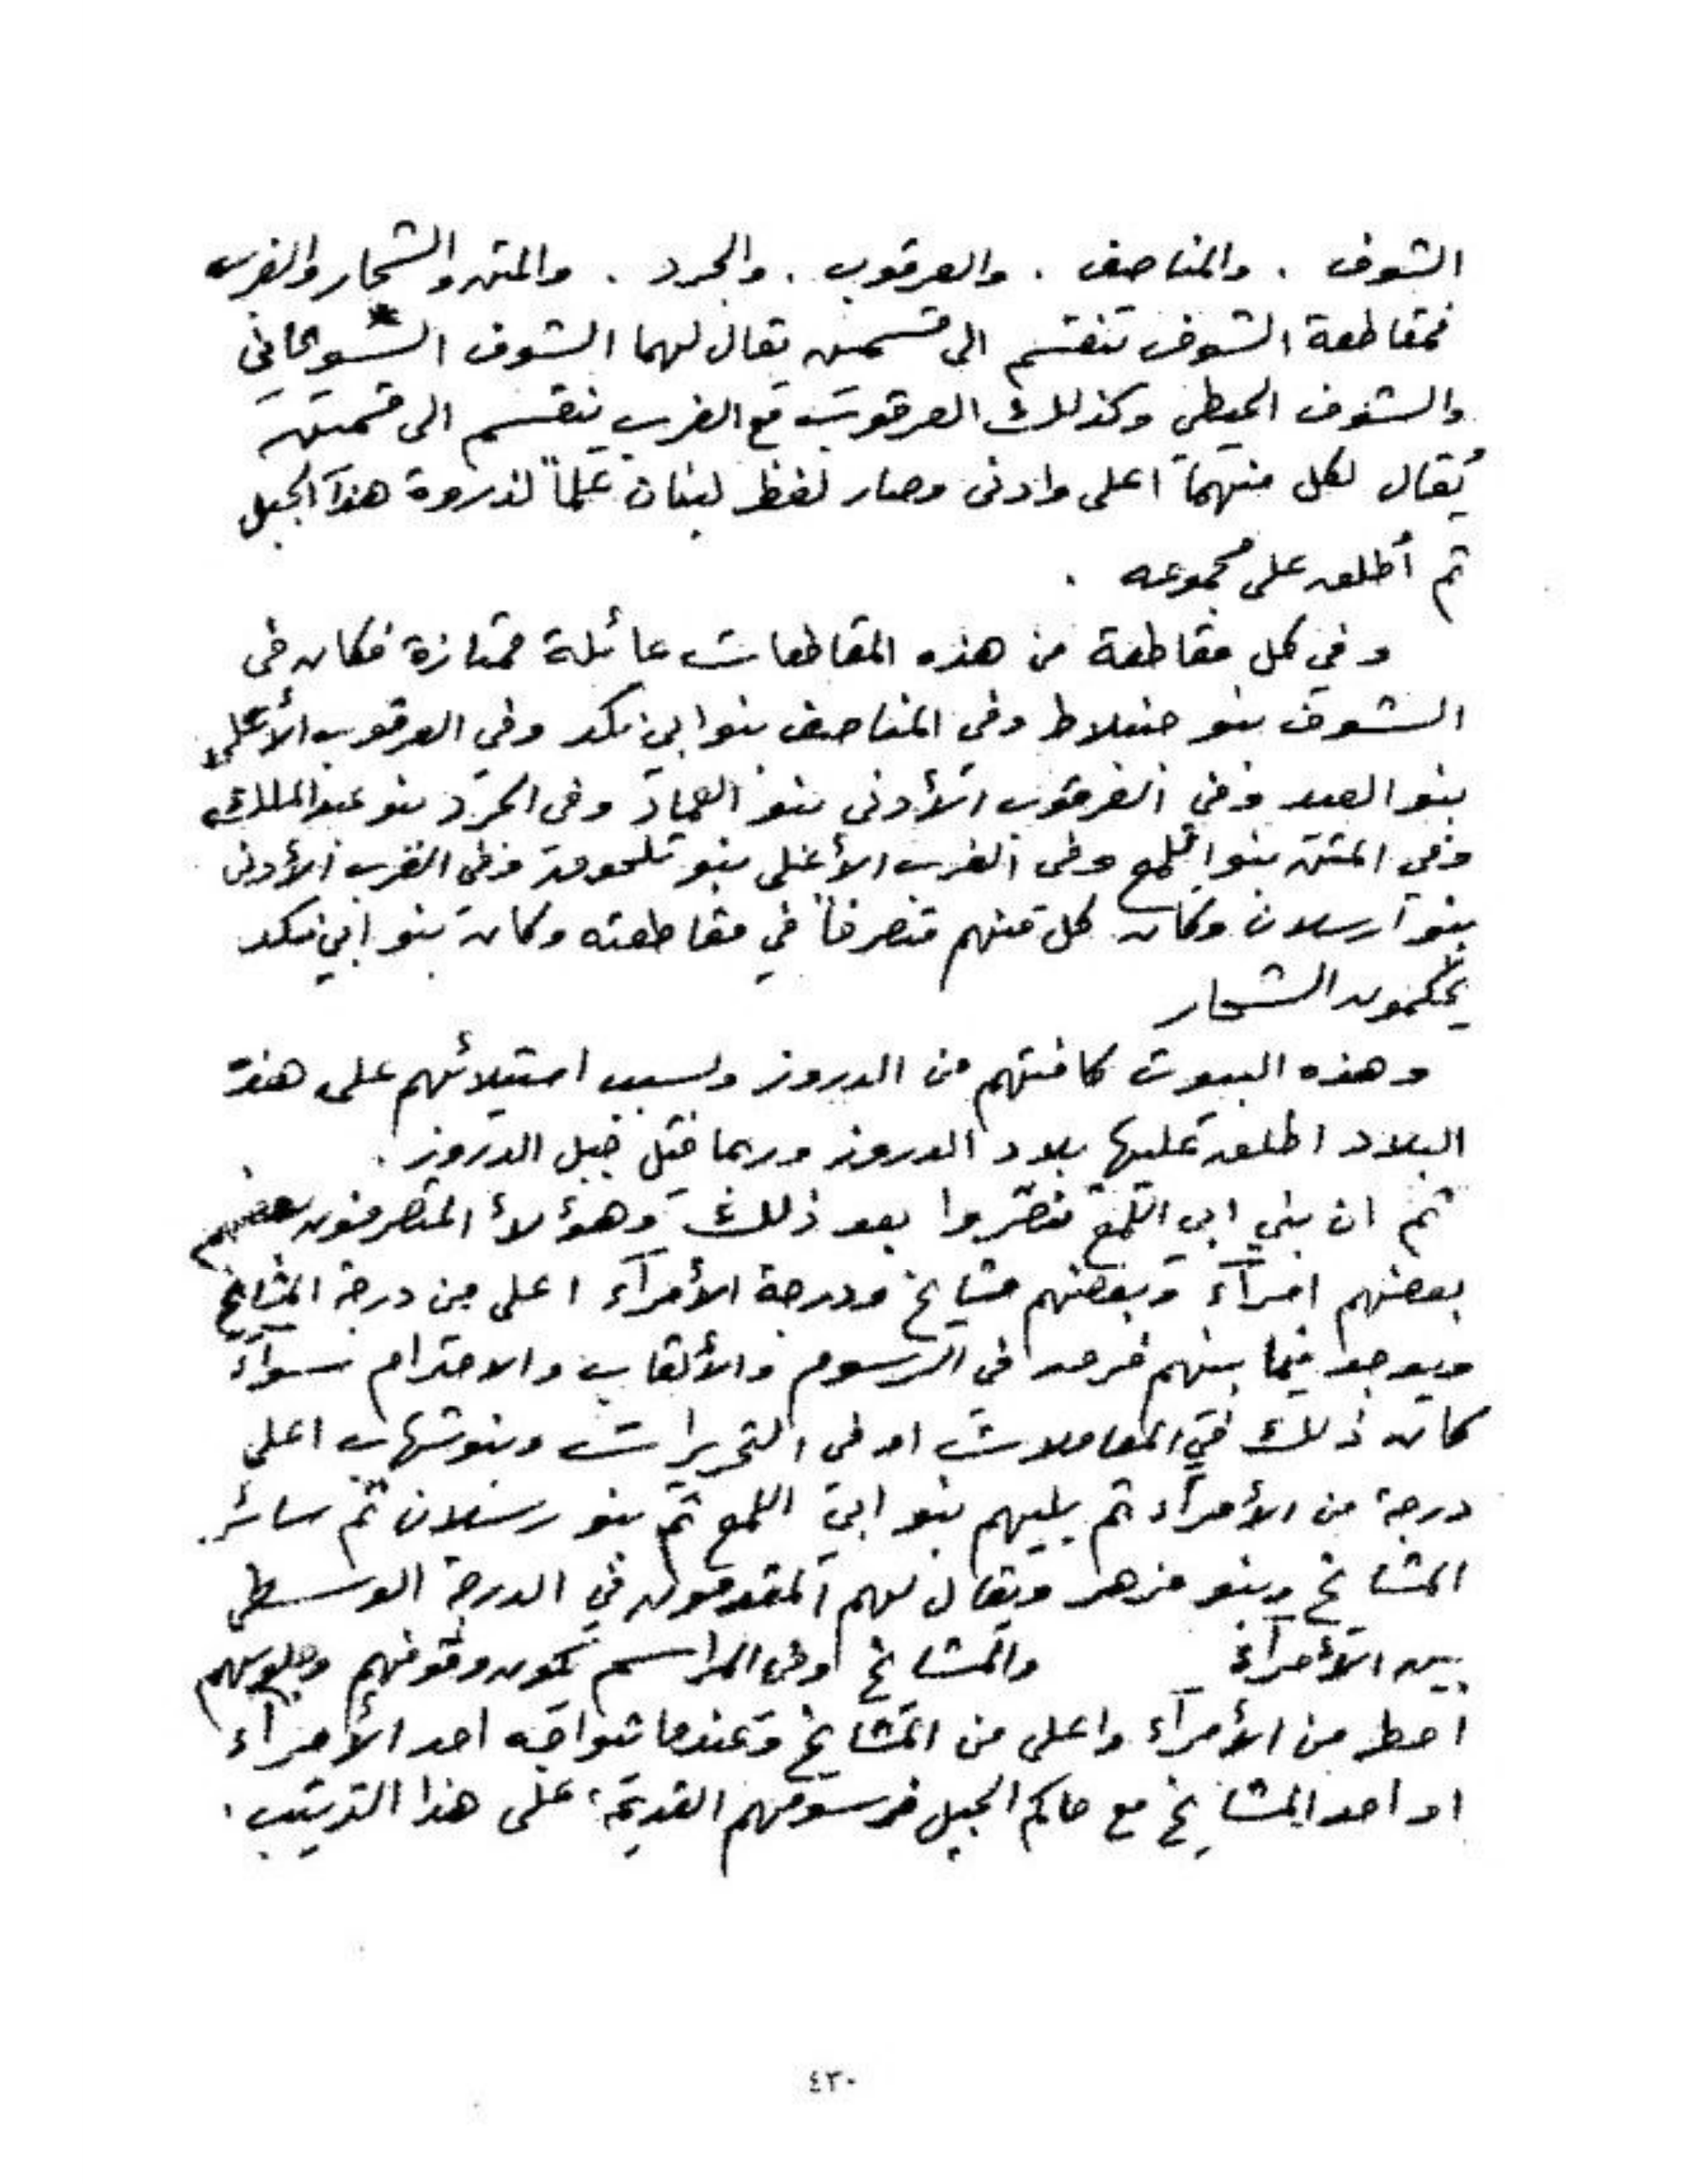 الشوف . والمناصف . والعرقوب . والجرد . والمتن والشحار والغرب
فمقاطعة الشوف تنقسم الى قسمين يقال لهما الشوف الشويحاني
والشوف الحيطي وكذلك العرقوب مع الغرب ينقسم الى قسمين
يُقال لكل منهما اعلى وادنى وصار لفظ لبنان علماً لذروة هذا الجبل
ثم أطلق على مجموعه .
وفي كل مقاطعة من هذه المقاطعات عائلة ممتازة فكان في
الشوف بنو جنبلاط وفي المناصف بنو ابي نكد وفي العرقوب الأعلى
بنو العيد وفي العرقوب الأدنى بنو العماد وفي الجرد بنو عبد الملك
وفي المتن بنو اللمع وفي الغرب الأعلى بنو تلحوق وفي الغرب الأدنى
بنو ارسلان وكان كل منهم متصرفاً في مقاطعته وكان بنو ابي نكد
يحكمون الشحار
وهذه البيوت كافتهم من الدروز ولسبب استيلائهم على هذه
البلاد اطلق عليها بلاد الدروز وربما قيل جبل الدروز .
ثم ان بني ابي اللمع تنصروا بعد ذلك وهؤلاء المتصرفون بعضهم
بعضهم امرآء وبعضهم مشايخ ودرجة الأمرآء اعلى من درجة المشايخ
ويوجد فيما بينهم فرق في الرسوم والألقاب والاحترام سوآء
كان ذلك في المعاملات او في التحريرات وبنو شهاب اعلى
درجة من الأمرآء ثم يليهم بنو ابي اللمع ثم بنو رسلان ثم سائر
المشايخ وبنو مزهر ويقال لهم المقدمون في الدرجة الوسطى
بين الأمرآء والمشايخ وفي المراسم تكون وقوفهم وجلوسهم
احط من الأمرآء واعلى من المشايخ وعندما تواجه احد الأمرآء
او احد المشايخ مع حاكم الجبل فرسومهم القديمة على هذا الترتيب .
٤٣٠